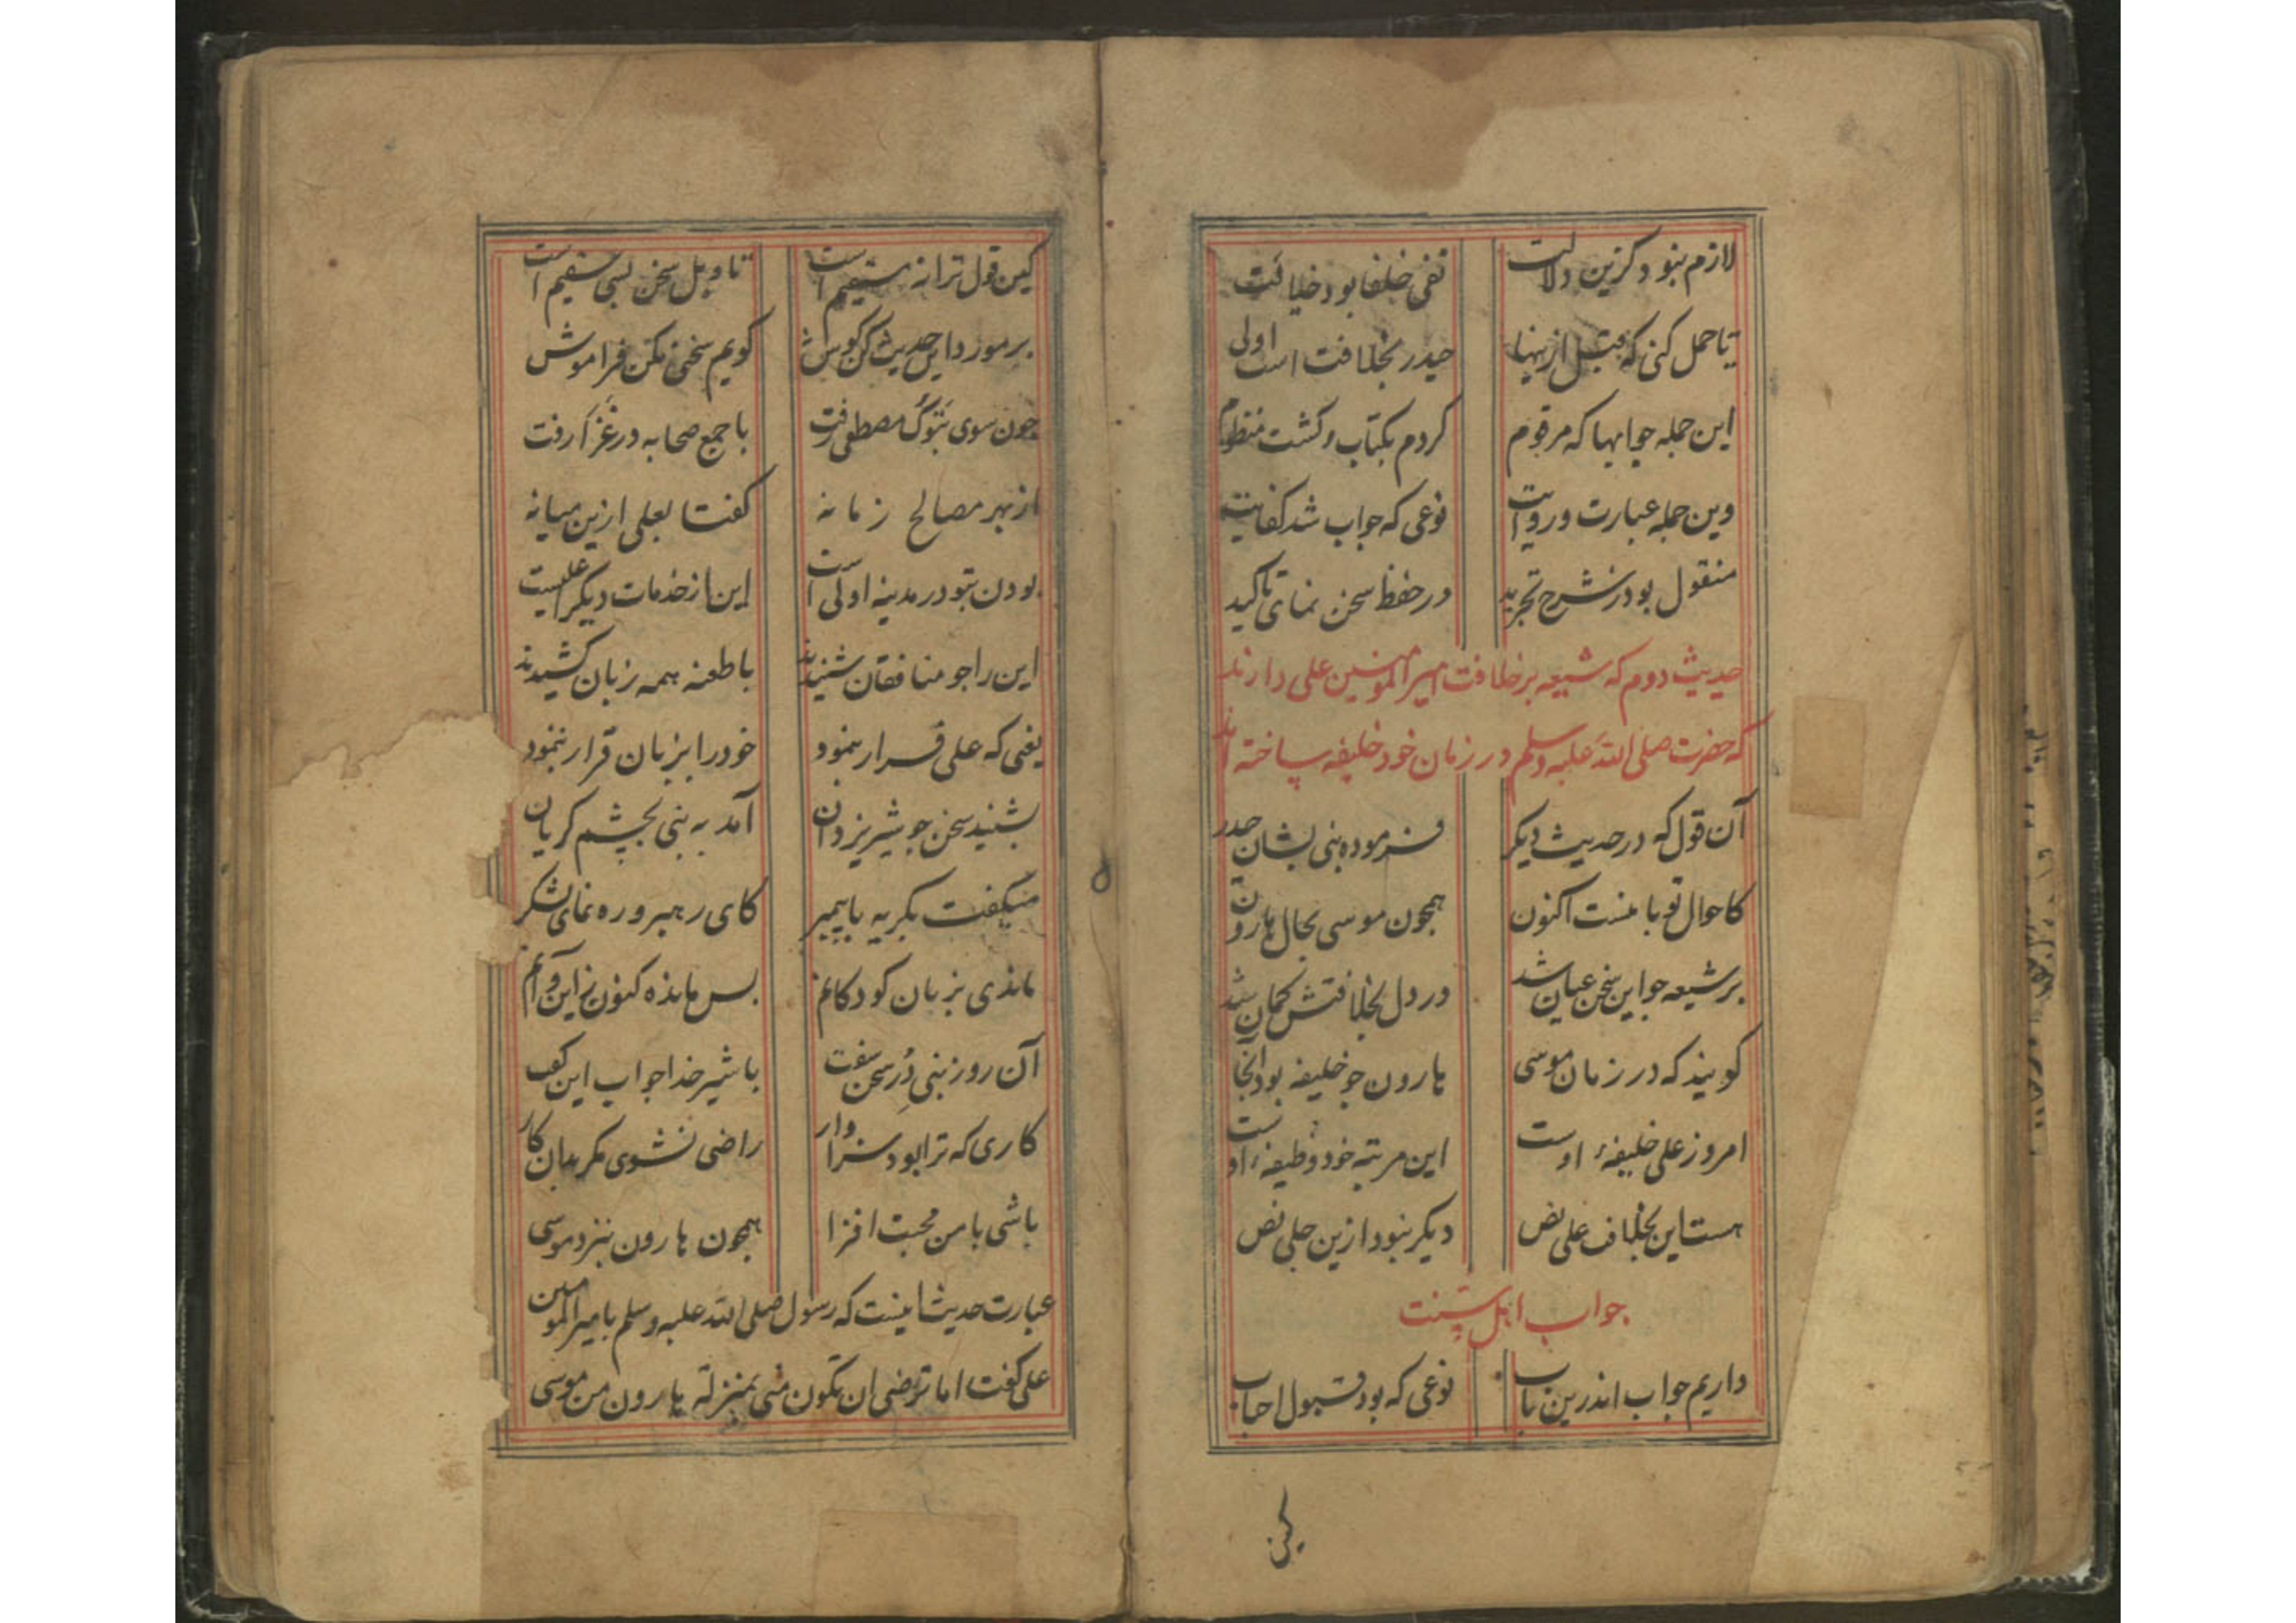 لازم نبود کزین دلالت نفی خلفا بود خلافت
تا حمل کنی که قبل ازینها حیدر بخلافت است اولی
این جمله جوابها که مرقوم کردم بکتاب و کشت منظوم
وین جمله عبارت و روایت نوعی که جواب شد کفایت
منقول بود ز شرح تجرید در حفظ سخن نمای تاکید
حدیث دوم که شیعه بر خلافت امیر المومنین علی دارند
که حضرت صلی الله علیه وسلم در زمان خود خلیفه ساخته اند
آن قول که در حدیث دیکر فرموده نبی بشان حیدر
کاحوال تو با منست اکنون همچون موسی بحال هارون
بر شیعه جو این سخن عیان شد در دل بخلافتش کمان شد
کویند که در زمان موسی هارون جو خلیفه بود آنجا
امروز علی خلیفهٔ اوست این مرتبه خود وظیفهٔ اوست
هست این بخلاف علی نص دیکر نبود ازین جلی نص
جواب اهل سنت
داریم جواب اندرین باب نوعی که بود قبول احباب
کین
کین قول ترا نه مستقیم است تاویل سخن بسی سقیم است
بر مورد این حدیث کن کوش کویم سخنی مکن فراموش
جون سوی تبوک مصطفی رفت با جمع صحابه در غزا رفت
از بهر مصالح زمانه کفتا بعلی ازین میانه
بودن بتو در مدینه اولی است این از خدمات دیکر اعلیست
این را جو منافقان شنیدند با طعنه همه زبان کشیدند
یعنی که علی فرار بنمود خود را بزبان قرار بنمود
بشنید سخن جو شیر یزدان آمد به نبی بچشم کریان
میکفت بکریه با پیمبر کای رهبر و ره نمای لشکر
ماندی بزبان کودکانم بس مانده کنون ز این و آنم
آن روز نبی دُر سخن سفت با شیر خدا جواب این کفت
کاری که ترا بود سزاوار راضی نشوی مکر بدان کار
باشی با من محبت افزا همچون هارون بنزد موسی
عبارت حدیث اینست که رسول صلی الله علیه وسلم با امیر المومنین
علی کفت اما ترضی ان تکون منی بمنزلة هارون من موسی